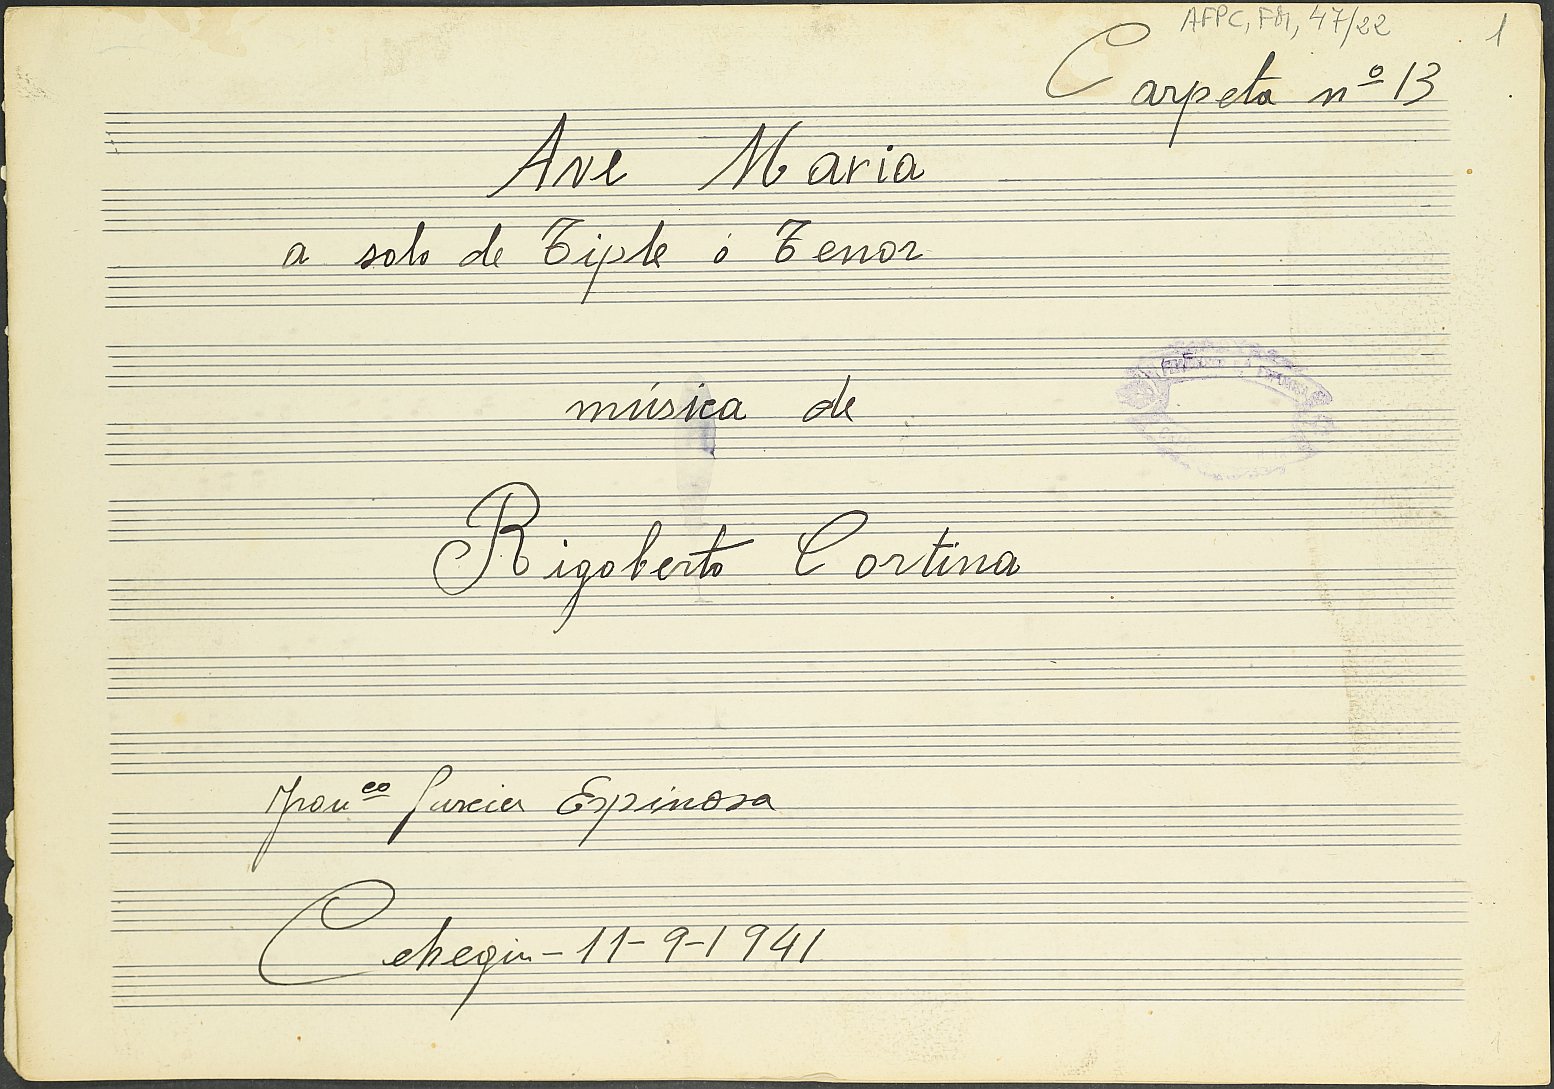 AFPC, FM, 47/22
1
Carpeta nº 13
Ave Maria
a solo de Tiple ó Tenor
música de
Rigoberto Cortina
Franco Garcia Espinosa
Cehegin - 11-9-1941